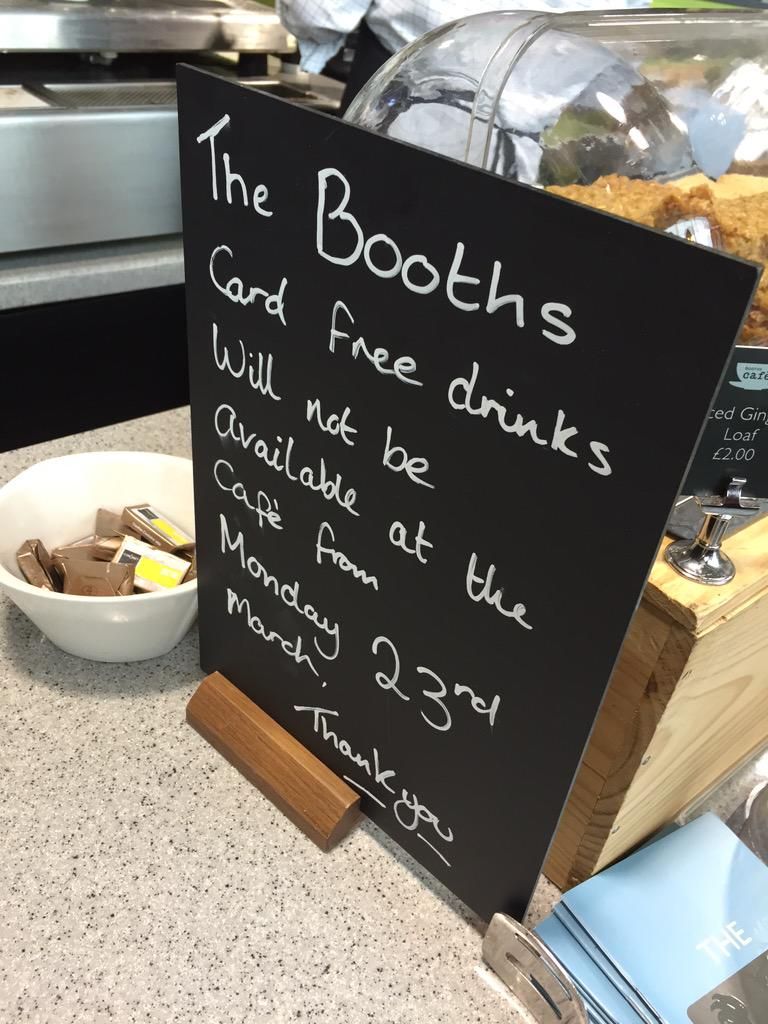 The Booths
Card free drinks
Will not be
available at the
Café from
Monday 23rd
March.
Thank you
BOOTHS
café
ced Ging
Loaf
£2.00
THE